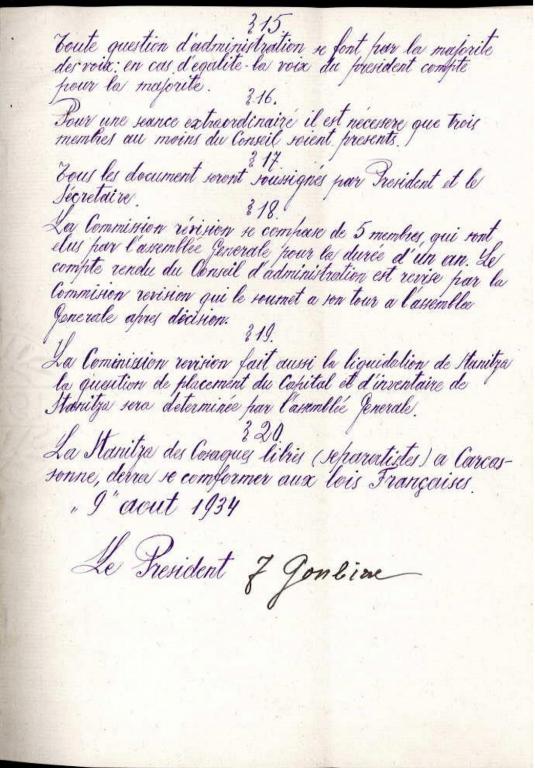 § 15
Toute question d'administration se font par la majorite
des voix; en cas d'egalite - la voix du president compte
pour la majorite.
§ 16.
Pour une seance extraordinaire il est nécesere que trois
membres au moins du Conseil soient presents.
§ 17
Tous les document seront soussignés par President et le
Sécretaire.
§ 18.
La Commission révision se compase de 5 membres, qui sont
elus par l'assemblée Generale pour la durée d'un an. Le
compte rendu du Conseil d'administration est revise par la
Commision revision qui le soumet a son tour a l'assemblee
Generale apres décision.
§ 19.
La Commission revision fait aussi la liquidation de Stanitza
la question de placement du Capital et d'inventaire de
Stanitza sera determinée par l'assemblée Generale.
§ 20
La Stanitza des Cosaques libres (separatistes) a Carcas-
sonne, devra se comformer aux lois Françaises.
„ 9" aout 1934
Le President